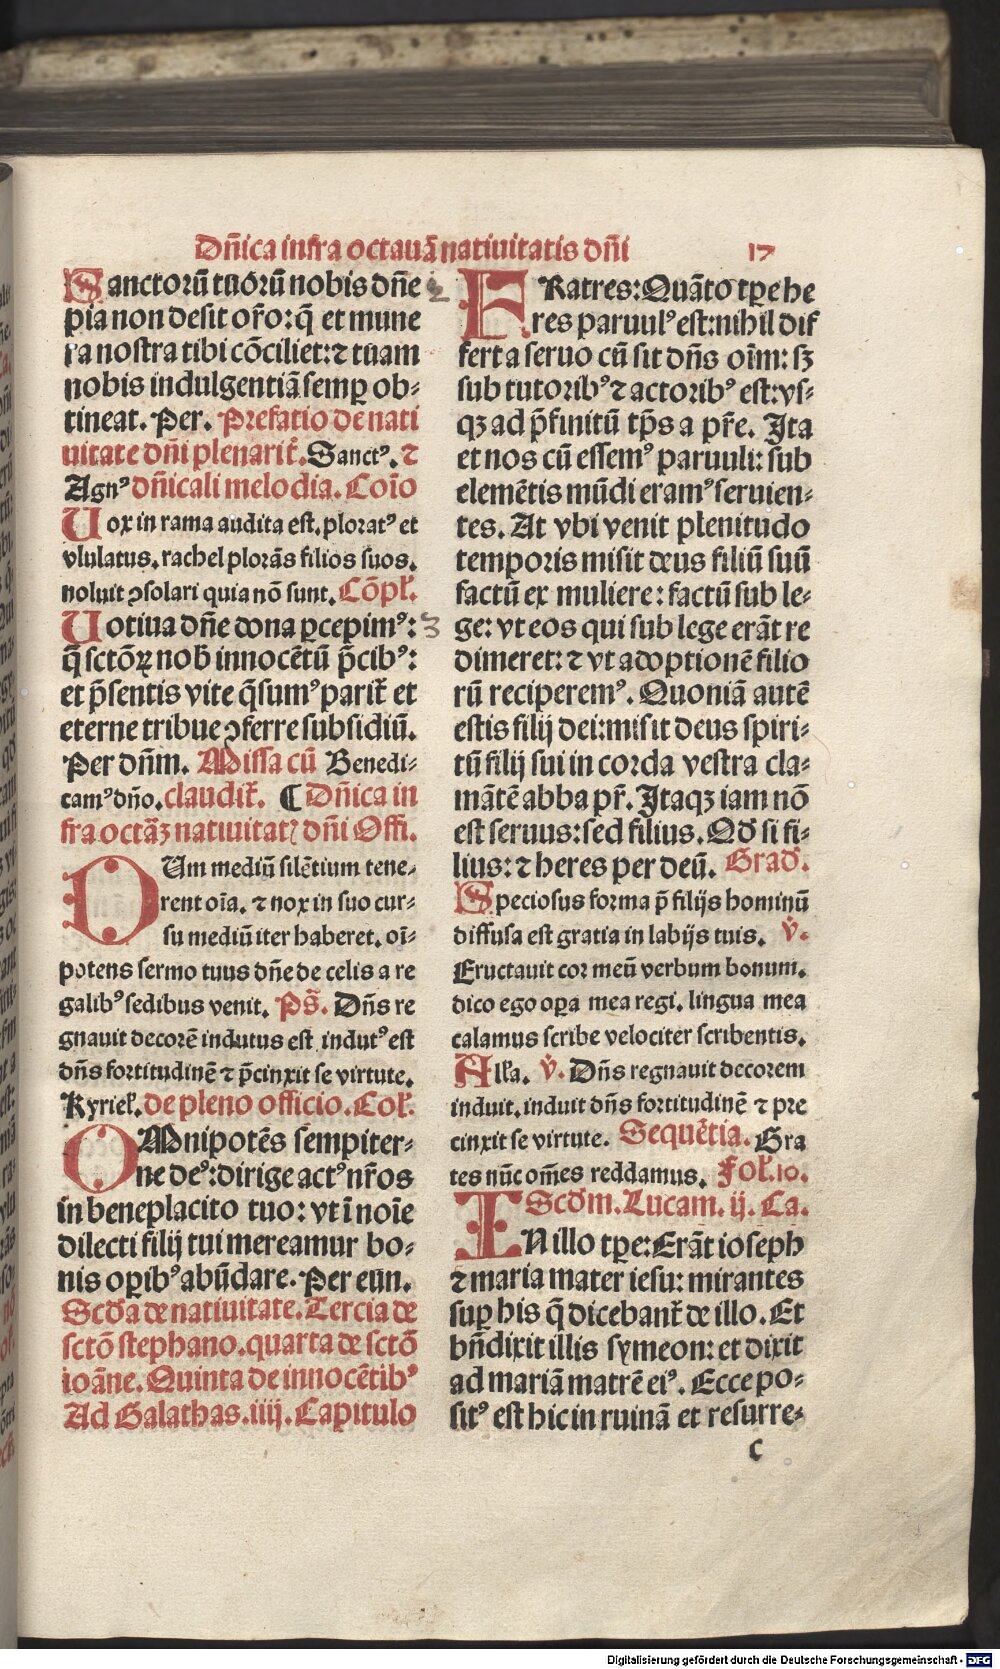 Dn̄ica infra octauā natiuitatis dn̄i 17
Sanctorū tuorū nobis dn̄e
pia non desit or̄o: q̄ et mune
ra nostra tibi cōciliet: ⁊ tuam
nobis indulgentiā semꝑ ob⸗
tineat. Per. Prefatio de nati
uitate dn̄i plenarit᷑. Sanctꝰ. ⁊
Agnꝰ dn̄icali melodia. Coīo
Uox in rama audita est. ploratꝰ et
vlulatus. rachel plorās filios suos.
noluit ꝯsolari quia nō sunt. Cōpł.
Uotiua dn̄e dona ꝑcepimꝰ: 3
q̄ sctōꝝ nob̄ innocētū p̄cibꝰ:
et p̄sentis vite q̄sumꝰ parit᷑ et
eterne tribue ꝯferre subsidiū.
Per dn̄m. Missa cū Benedi⸗
camꝰ dn̄o. claudit᷑. ¶ Dn̄ica in
fra octāꝫ natiuitatꝭ dn̄i Offi.
DUm mediū silētium tene⸗
rent oīa. ⁊ nox in suo cur⸗
su mediū iter haberet. oī⸗
potens sermo tuus dn̄e de celis a re
galibꝰ sedibus venit. Ps̄. Dn̄s re
gnauit decorē indutus est indutꝰ est
dn̄s fortitudinē ⁊ p̄cinxit se virtute.
Kyrieł. de pleno officio. Coł.
OMnipotēs sempiter⸗
ne deꝰ: dirige actꝰ nr̄os
in beneplacito tuo: vt ī noīe
dilecti filij tui mereamur bo⸗
nis oꝑibꝰ abūdare. Per eūn.
Scd̄a de natiuitate. Tercia de
sctō stephano. quarta de sctō
ioāne. Quinta de innocētibꝰ
Ad Galathas. iiij. Capitulo
2 FRatres: Quāto tꝑe he
res paruulꝰ est: nihil dif
fert a seruo cū sit dn̄s oīm: sꝫ
sub tutoribꝰ ⁊ actoribꝰ est: vs⸗
qꝫ ad p̄finitū tp̄s a pr̄e. Ita
et nos cū essemꝰ paruuli: sub
elemētis mūdi eramꝰ seruien⸗
tes. At vbi venit plenitudo
temporis misit deus filiū suū
factū ex muliere: factū sub le⸗
ge: vt eos qui sub lege erāt re
dimeret: ⁊ vt adoptionē filio
rū reciperemꝰ. Quoniā autē
estis filij dei: misit deus spiri⸗
tū filij sui in corda vestra cla⸗
mātē abba pr̄. Itaqꝫ iam nō
est seruus: sed filius. Qd̄ si fi⸗
lius: ⁊ heres per deū. Grad̄.
Speciosus forma p̄ filijs hominū
diffusa est gratia in labijs tuis. v̄.
Eructauit cor meū verbum bonum.
dico ego oꝑa mea regi. lingua mea
calamus scribe velociter scribentis.
Ałła. v̄. Dn̄s regnauit decorem
induit. induit dn̄s fortitudinē ⁊ pre
cinxit se virtute. Sequētia. Gra
tes nūc om̄es reddamus. Foł. 10.
Scd̄m. Lucam. ij. Ca.
IN illo tꝑe: Erāt ioseph
⁊ maria mater iesu: mirantes
suꝑ his q̄ dicebant᷑ de illo. Et
bn̄dixit illis symeon: et dixit
ad mariā matrē eiꝰ. Ecce po⸗
sitꝰ est hic in ruinā et resurre⸗
c
Digitalisierung gefördert durch die Deutsche Forschungsgemeinschaft - DFG